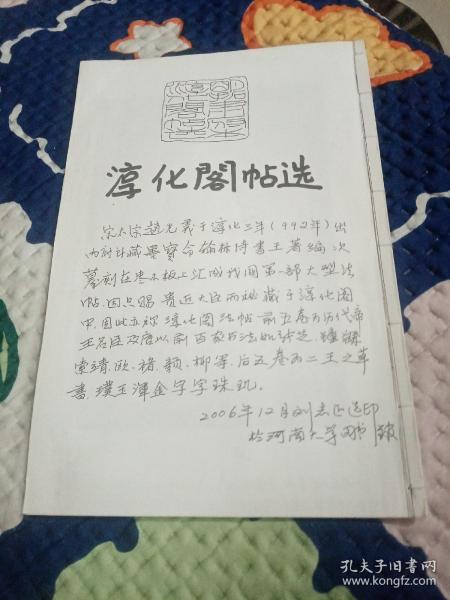 淳化阁帖选
宋太宗赵光义于淳化三年(992年)出
内府所藏墨宝命翰林侍书王著编次
摹刻在枣木板上汇成我国第一部大型法
帖.因只赐贵近大臣而秘藏于淳化阁
中.因此亦称淳化阁法帖.前五卷为历代帝
王名臣及唐以前百家书法如张芝、钟繇
索靖、欧、褚、颜、柳等.后五卷为二王之草
书.璞玉浑金字字珠玑.
2006年12月刘志正选印
于河南大学图书馆
孔夫子旧书网
www.kongfz.com